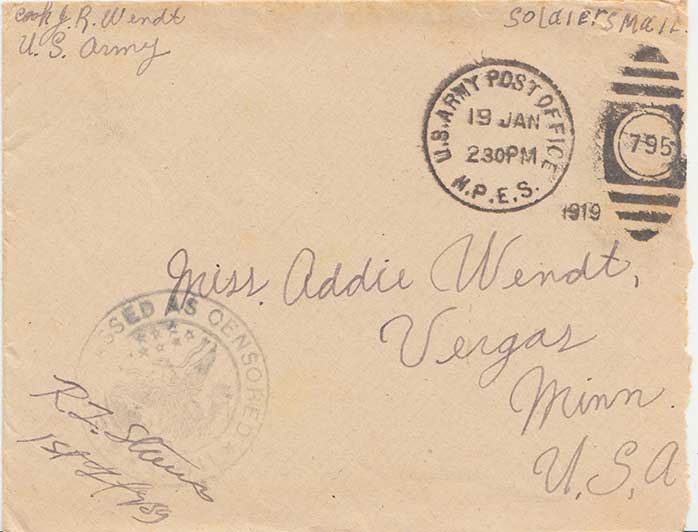 Cook J. R. Wendt
U.S. Army
Soldiers Mail.
U.S. ARMY POST OFFICE
19 JAN
230PM
M.P.E.S.
1919
795
Miss. Addie Wendt,
Vergas
Minn.
U.S,A
PASSED AS CENSORED
R.
1st